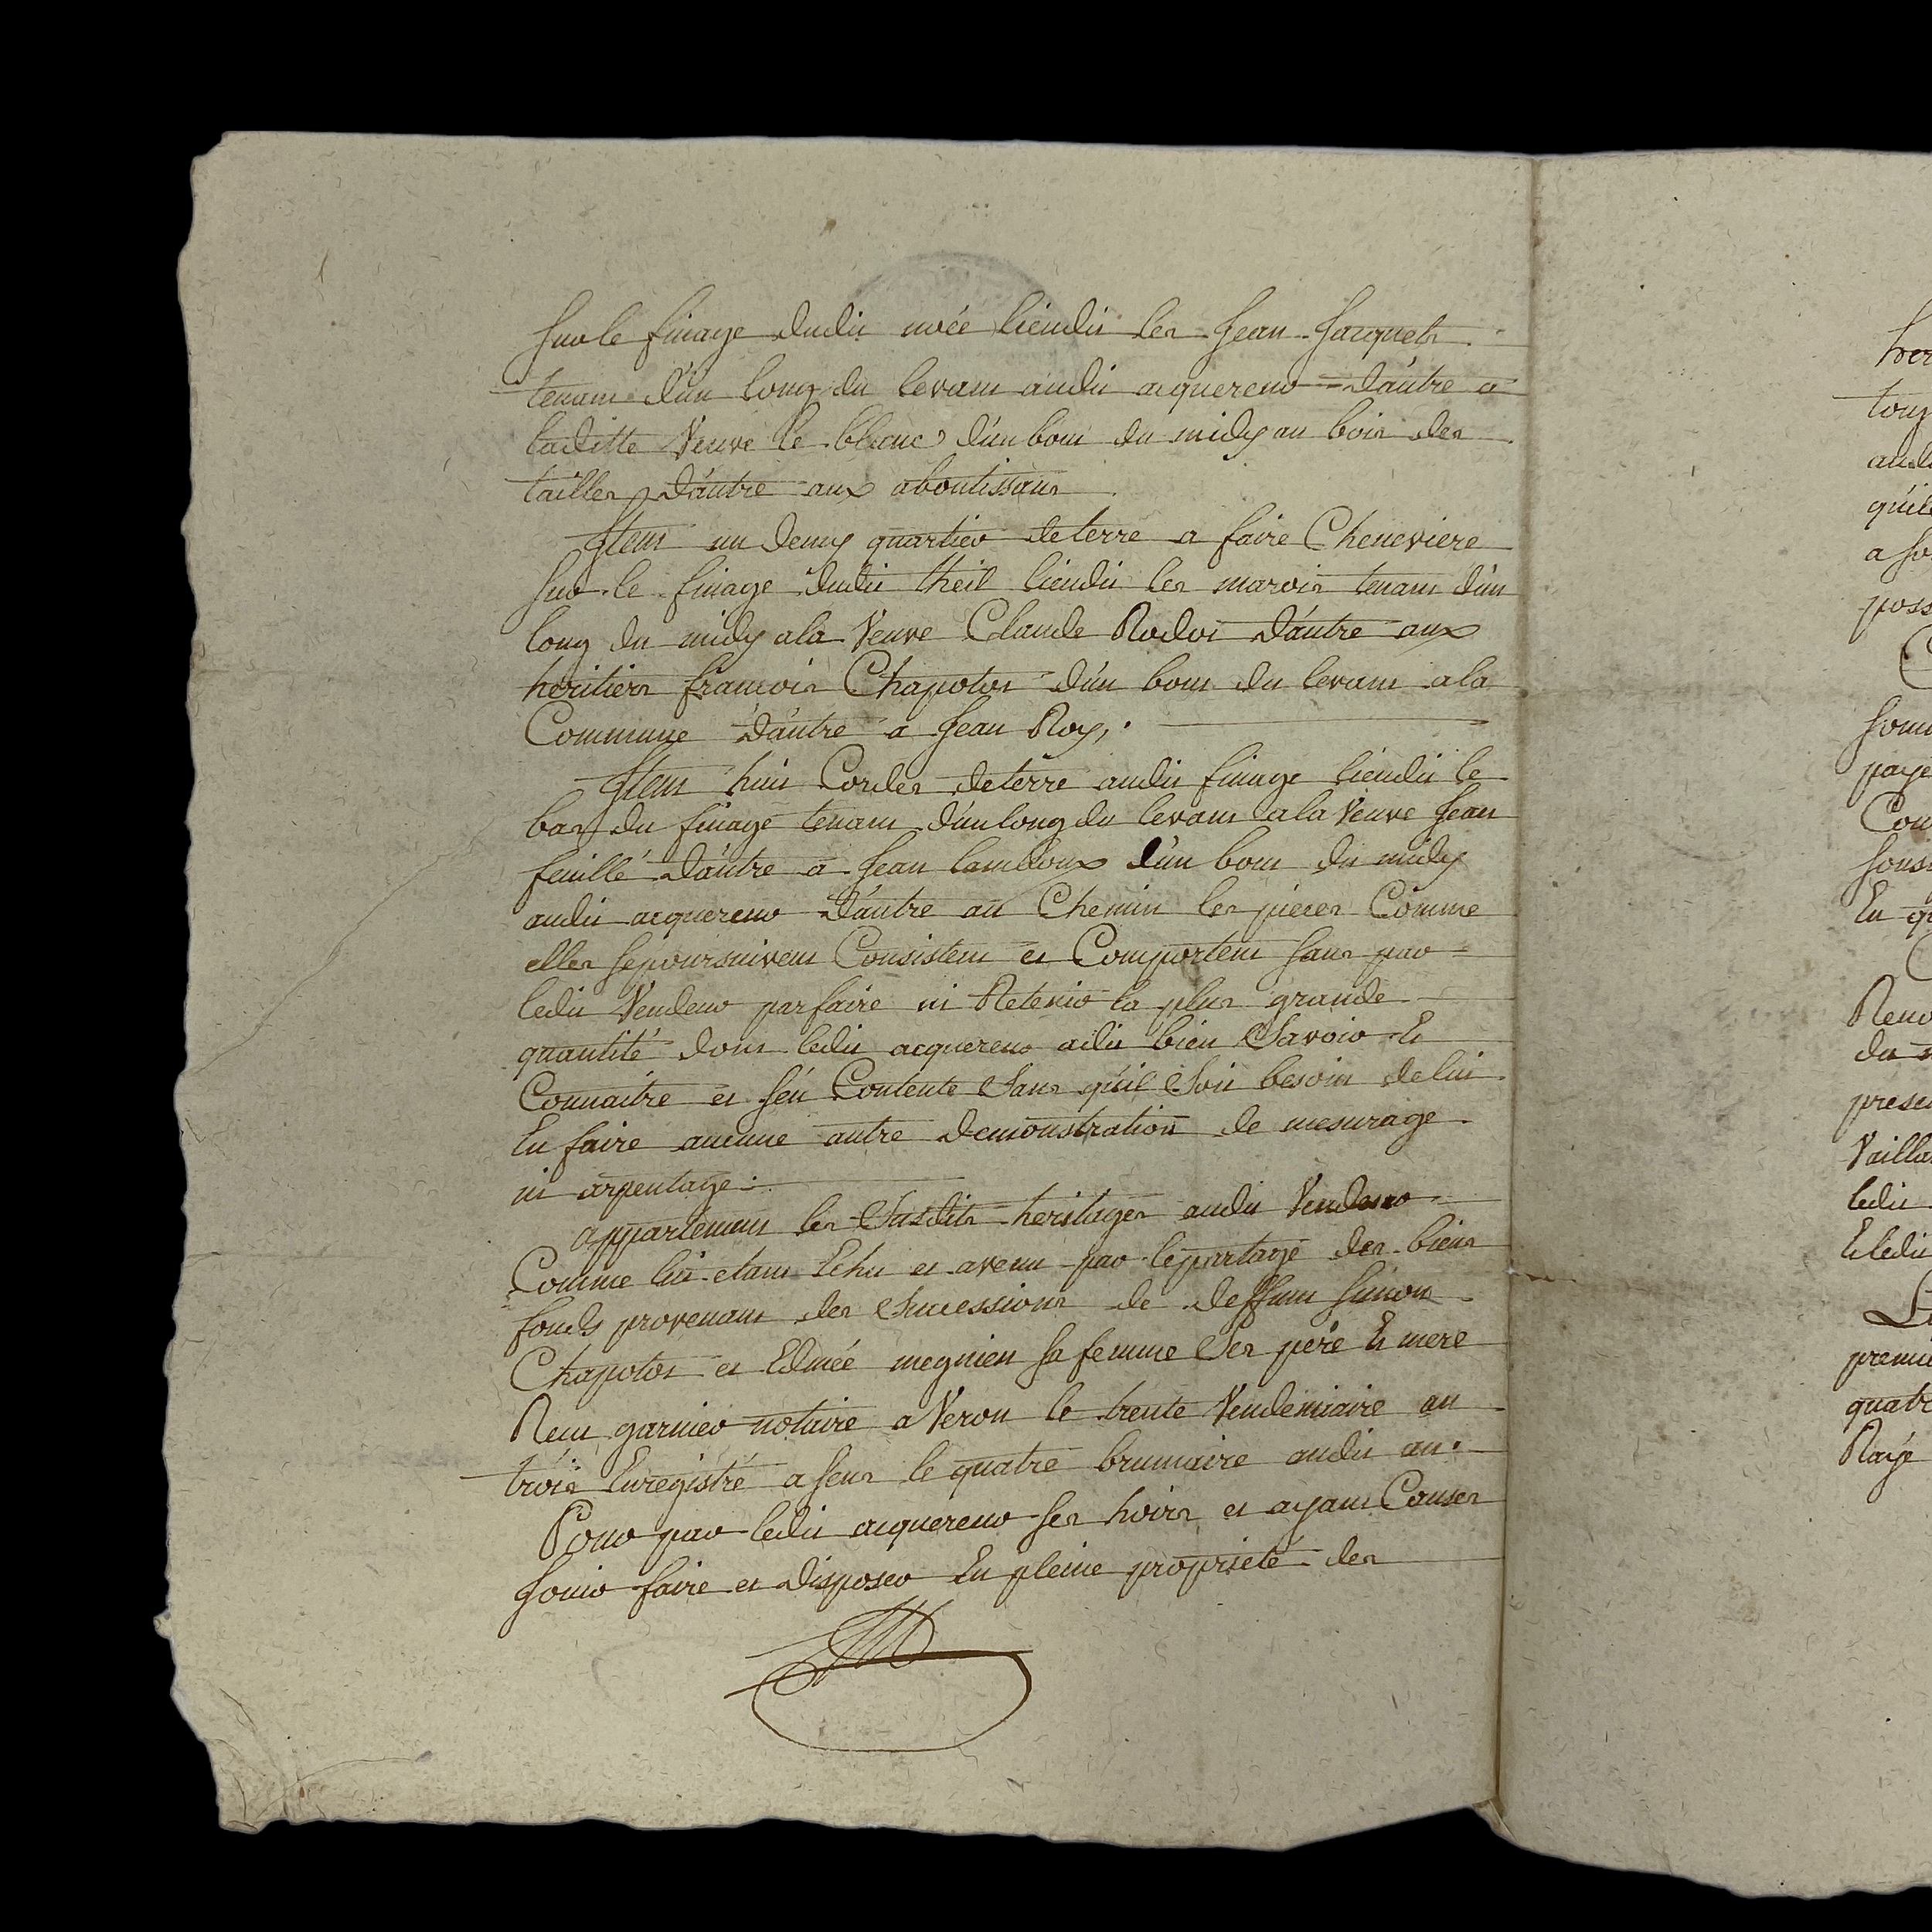 Sur le finage dudit noée lieudit les Jean Jacquets
tenant d'un long du levant audit acquereur d'autre a
laditte Veuve le blanc d'un bout du midy au bois des
tailles d'autre aux aboutissans
Item un demy quartier de terre a faire Cheneviere
Sur le finage dudit theil lieudit les marois tenant d'un
long du midy a la Veuve Claude Rodot d'autre aux
heritiers francois Chapotot d'un bout du levant a la
Commune d'autre a Jean Roy,
Item huit Cordes de terre audit finage lieudit le
bas du finage tenant d'un long du levant a la Veuve Jean
feuillé d'autre a Jean lamdoux d'un bout du midy
audit acquereur d'autre au Chemin les pieces Comme
elles se poursuivent Consistent et Comportent sans par
ledit Vendeur parfaire ni Retenir la plus grande
quantité dont ledit acquereur a dit bien Savoir Et
Connaitre et s'en Contente Sans qu'il Soit besoin de lui
En faire aucune autre demonstration de mesurage
ni arpentage
appartenant les Susdits heritages audit Vendeur
Comme lui etant Echu et avenu par le partage des biens
fonds provenant des Successions de deffunt Simon
Chapotot et Edmée megnien sa femme Ses père Et mere
Recu garnier notaire a Veron le trente Vendemiaire an
trois Enregistré a Sens le quatre brumaire audit an.
Pour par ledit acquereur ses hoirs et ayant Causes
Jouir faire et disposer En pleine proprieté des
tout
aud
a
poss
Som
paye
Con
En
du
prese
Vailla
ledit
Et ledit
premie
quatr
Rayé